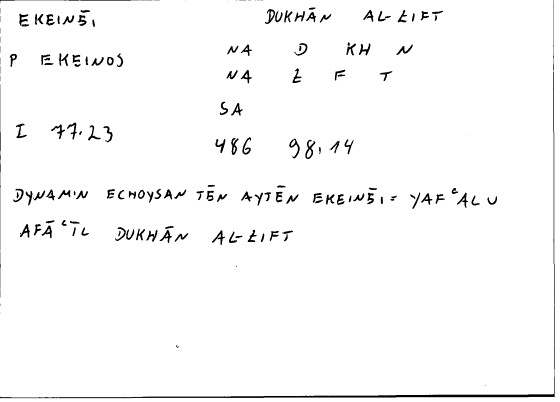 EKEINĒI DUKHĀN AL-ŁIFT
NA D KH N
P EKEINOS
NA Ł F T
SA
I 77.23
486 98.14
DYNAMIN ECHOYSAN TĒN AYTĒN EKEINĒI = YAFʿALU
AFĀʿĪL DUKHĀN AL-ŁIFT